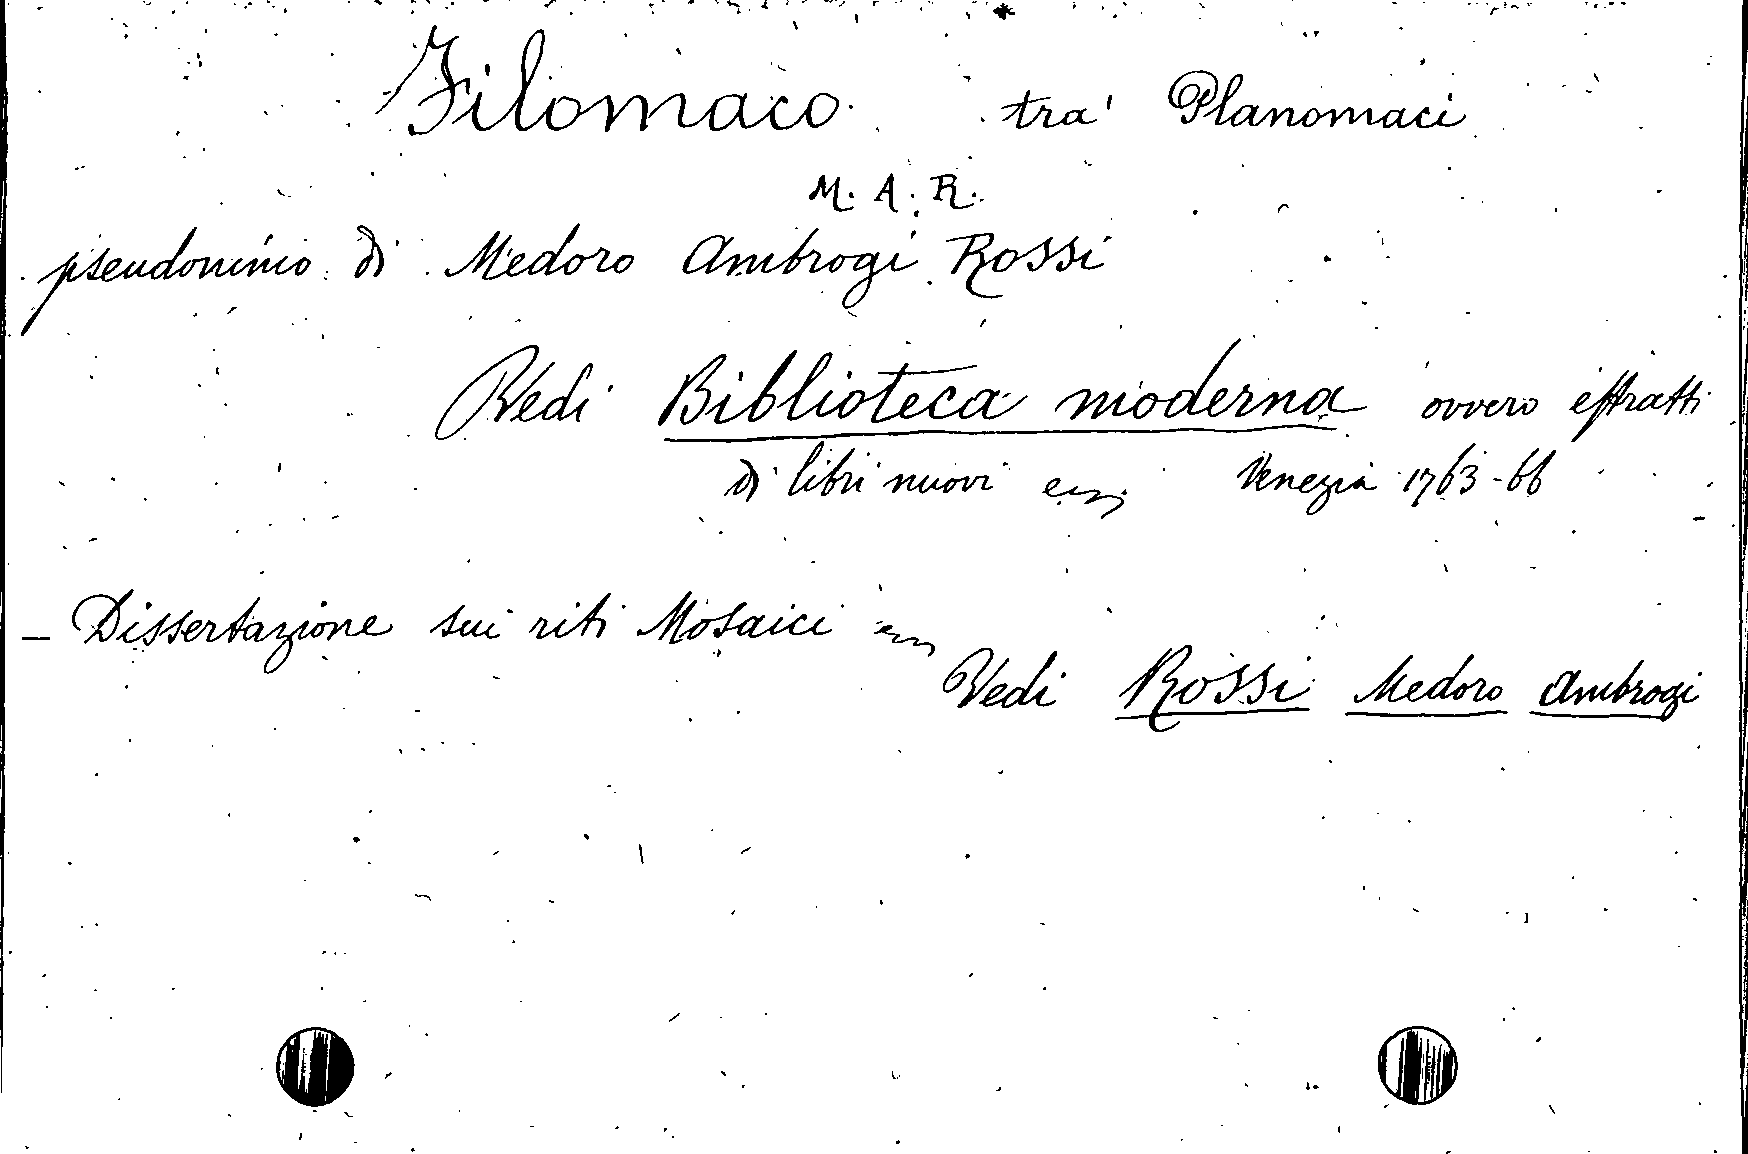 Filomaco tra' Planomaci
M. A. R.
pseudonimo di Medoro Ambrogi Rossi
Vedi Biblioteca moderna ovvero estratti
di libri nuovi Venezia 1763-66
- Dissertazione sui riti Mosaici
Vedi Rossi Medoro Ambrogi